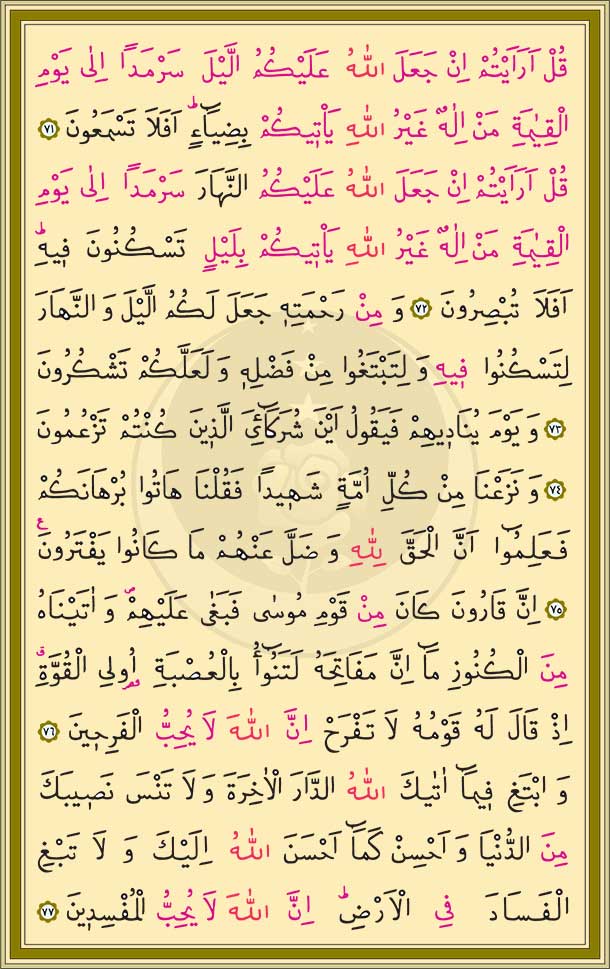 قُلْ اَرَاَيْتُمْ اِنْ جَعَلَ اللّٰهُ عَلَيْكُمُ الَّيْلَ سَرْمَداً اِلٰى يَوْمِ
الْقِيٰمَةِ مَنْ اِلٰهٌ غَيْرُ اللّٰهِ يَأْت۪يكُمْ بِضِيَٓاءٍۜ اَفَلَا تَسْمَعُونَ ﴿٧١﴾
قُلْ اَرَاَيْتُمْ اِنْ جَعَلَ اللّٰهُ عَلَيْكُمُ النَّهَارَ سَرْمَداً اِلٰى يَوْمِ
الْقِيٰمَةِ مَنْ اِلٰهٌ غَيْرُ اللّٰهِ يَأْت۪يكُمْ بِلَيْلٍ تَسْكُنُونَ ف۪يهِۜ
اَفَلَا تُبْصِرُونَ ﴿٧٢﴾ وَ مِنْ رَحْمَتِه۪ جَعَلَ لَكُمُ الَّيْلَ وَ النَّهَارَ
لِتَسْكُنُوا ف۪يهِ وَ لِتَبْتَغُوا مِنْ فَضْلِه۪ وَ لَعَلَّكُمْ تَشْكُرُونَ
﴿٧٣﴾ وَ يَوْمَ يُنَاد۪يهِمْ فَيَقُولُ اَيْنَ شُرَكَٓائِيَ الَّذ۪ينَ كُنْتُمْ تَزْعُمُونَ
﴿٧٤﴾ وَ نَزَعْنَا مِنْ كُلِّ اُمَّةٍ شَه۪يداً فَقُلْنَا هَاتُوا بُرْهَانَكُمْ
فَعَلِمُٓوا اَنَّ الْحَقَّ لِلّٰهِ وَ ضَلَّ عَنْهُمْ مَا كَانُوا يَفْتَرُونَ ع
﴿٧٥﴾ اِنَّ قَارُونَ كَانَ مِنْ قَوْمِ مُوسٰى فَبَغٰى عَلَيْهِمْۖ وَ اٰتَيْنَاهُ
مِنَ الْكُنُوزِ مَٓا اِنَّ مَفَاتِحَهُ لَتَنُٓوأُ بِالْعُصْبَةِ اُو۬لِي الْقُوَّةِۗ
اِذْ قَالَ لَهُ قَوْمُهُ لَا تَفْرَحْ اِنَّ اللّٰهَ لَا يُحِبُّ الْفَرِح۪ينَ ﴿٧٦﴾
وَ ابْتَغِ ف۪يمَٓا اٰتٰيكَ اللّٰهُ الدَّارَ الْاٰخِرَةَ وَ لَا تَنْسَ نَص۪يبَكَ
مِنَ الدُّنْيَا وَ اَحْسِنْ كَمَٓا اَحْسَنَ اللّٰهُ اِلَيْكَ وَ لَا تَبْغِ
الْفَسَادَ فِي الْاَرْضِۜ اِنَّ اللّٰهَ لَا يُحِبُّ الْمُفْسِد۪ينَ ﴿٧٧﴾